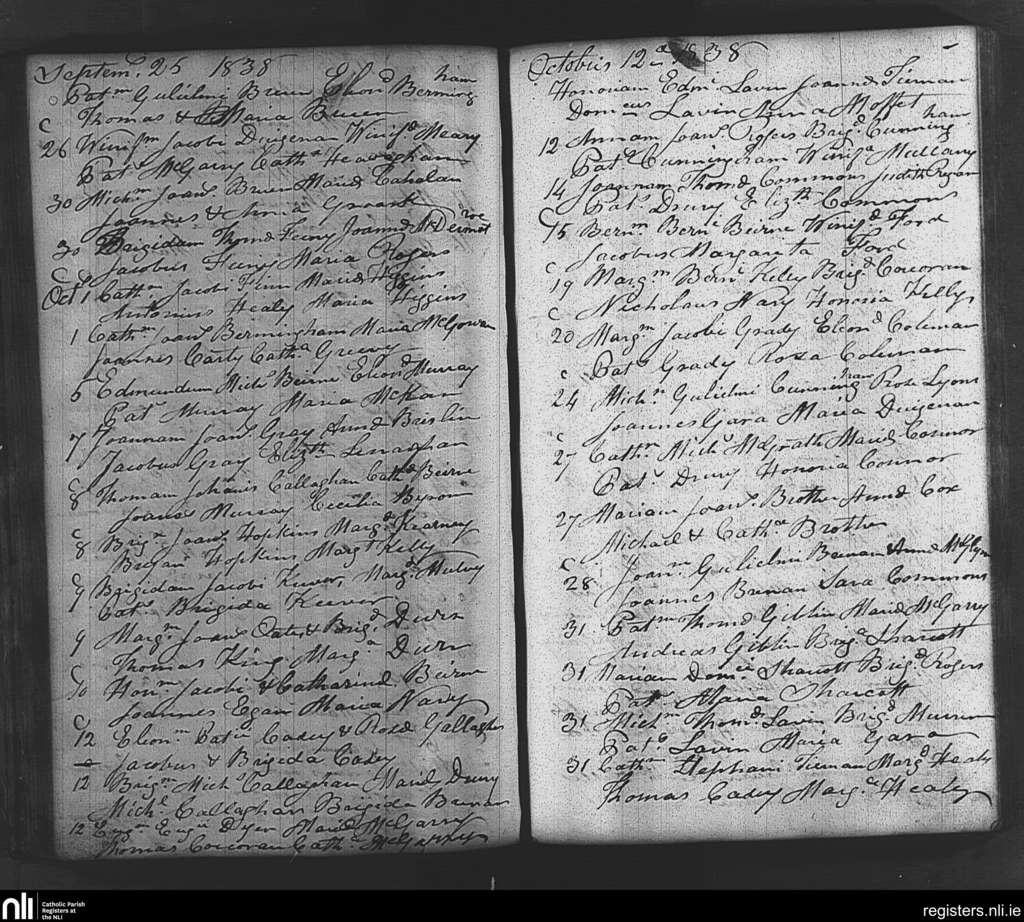 Septem. 25 1838
Patm Gulielmi Breen Eleon Berming ham
C Thomas & Maria Breen
26 Winifm Jacobi Duigenan Winifd Meary
Pat McGarry Catha Heavaghan
30 Michm Joans Brien Maria Caholan
Joannes & Anna
30 Brigidam Thoma Feeny Joanna McDermot roe
C Jacobus Feeny Maria Rogers
Oct 1 Cathm Jacobi Finn Maria Higgins
Antonius Healy Maria Higgins
1 Cathm Joans Bermingham Maria McGowan
Joannes Carty Catha Greevy
5 Edmundum Michl Beirne Elleond Murray
Pat Murray Maria McKeon
7 Joannam Joans Gray Anna Breslin
Jacobus Gray Elizth Lenaghan
C
8 Thomam Johanis Callaghan Catha Beirne
Joanes Murray Cecilia Byron
C
8 Brigm Joans Hopkins Marga Kearney
Bryan Hopkins Margt Kelly
C
9 Brigidam Jacobi Keever Marga Mulvey
Pat. Brigida Keever
9 Margm Joans Oates & Brigd Durr
Thomas King Marga Durr
C
10 Honm Jacobi & Catharina Beirne
Joannes Egan Maria Nary
C
12 Elionm Patii Casey & Rosa Gallagher
Jacobus & Brigida Casey
12 Brigm Michl Callaghan Maria Drury
Michl Callaghan Brigida Brennan
12 Eugm Eugii Dyer Maria McGarry
Thomas Corcoran Catha McGarry
Octobris 12 a 1838
Honoriam Edmi Lavin Joanna Tiernan
Domcus Lavin Anna Moffet
12 Annam Joans Rogers Brigd Cunning ham
Pat Cunningham Winifa Mullany
14 Joannam Thoma Commons Judith Regan
Pat Drury Elizth Commons
C 15 Bernm Berni Beirne Winifd Ford
Jacobus Margarita Ford
C
19 Margm Berni Kelly Brigd Corcoran
C Nicholaus Nary Honoria Kelly
20 Margm Jacobi Grady Eleond Coleman
C Pat Grady Rosa Coleman
24 Michm Gulielmi Cunningham Rose Lyons
Joannes Gara Maria Duigenan
C
27 Cathm Michl McGrath Maria Connor
Pat. Drury Honoria Connor
27 Mariam Joans Brother Anna Cox
Michael & Catha Brother
C
28 Joanm Gulielmi Brenan & Anna McGlynn
Joannes Brenan Sara Commons
31 Patm Thoma Giblin Maria McGarry
Andreas Giblin Briga Sharcott
31 Mariam Domci Sharcott Brigd Rogers
Pat. Maria Sharcott
31 Michm Thoma Lavin Brigd Murren
Pat. Lavin Maria Gara
31 Cathm Stephani Tiernan Margd Healy
Thomas Casey Marga Healey
nli Catholic Parish
Registers at
the NLI
registers.nli.ie